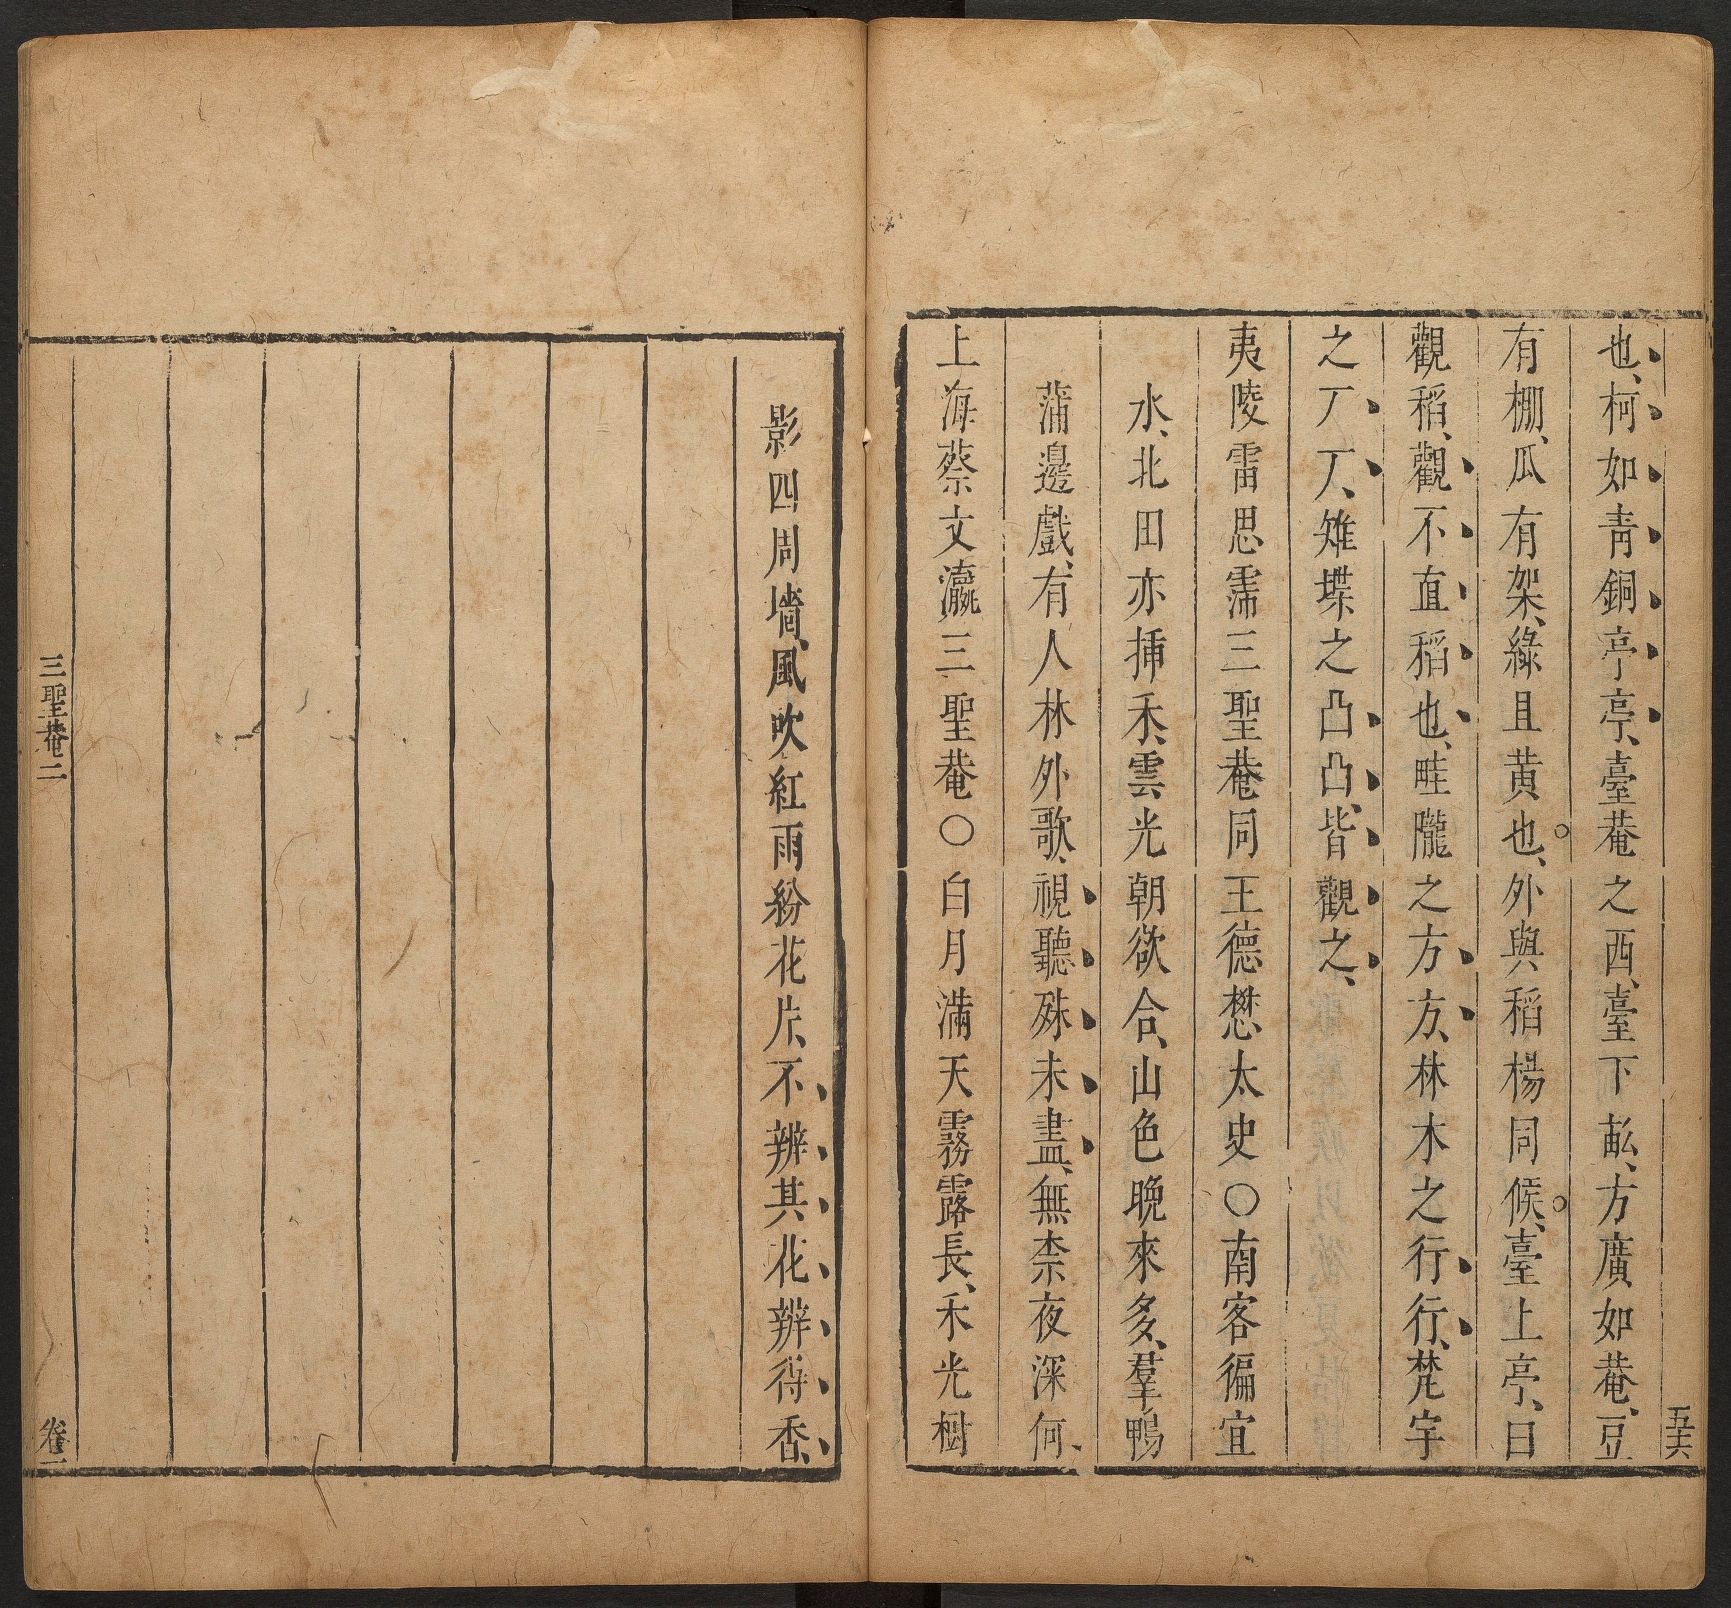 五六
也、柯如青銅亭亭、臺菴之西、臺下畝、方廣如菴、豆
有棚、瓜有架、綠且黃也、外與稻楊同候、臺上亭、曰
觀稻、觀不直稻也、畦隴之方方、林木之行行、梵宇
之厂厂、雉堞之凸凸、皆觀之、
夷陵雷思霈三聖菴同王德懋太史○南客徧宜
水、北田亦挿禾、雲光朝欲合、山色晚來多、羣鴨
蒲邊戲、有人林外歌、視聽殊未盡、無柰夜深何、
上海蔡文瀛三聖菴○白月滿天霧露長、禾光樹
影四周墻、風吹紅雨紛花片、不辨其花辨得香、
三聖菴二
卷一